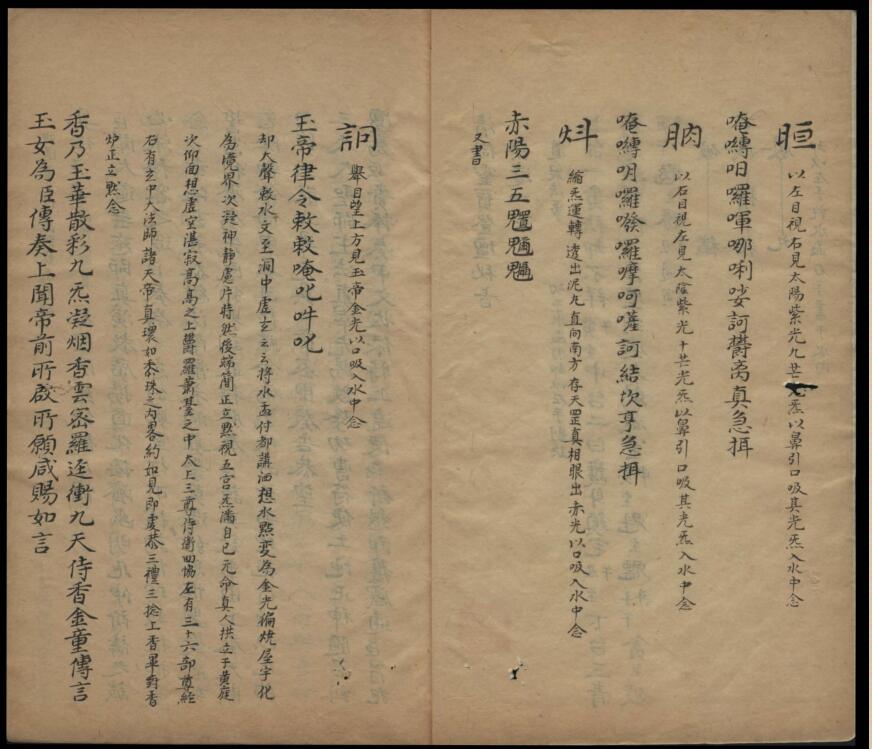 晅 以左目視右見太陽紫光九芒炁以鼻引口吸其光炁入水中念
唵嚩咱囉暉哪唎娑訶欝离真急揖
朒 以右目視左見太陰紫光十芒光炁以鼻引口吸其光炁入水中念
唵嚩明囉發囉摩呵嚯訶結坎亨急揖
炓 綿炁運轉遶出泥丸直向南方存天罡真相眼出赤光以口吸入水中念
赤陽三五
又書
詗 舉目望上方見玉帝金光以口吸入水中念
玉帝律令敕敕唵叱吽叱
却大聲敕水文至澗中虛玄云云將水盂付都講洒想水點变為金光徧燒屋宇化
為境界次凝神靜慮片時然後端簡正立黙視五宮炁滿自己元命真人拱立于黄庭
次仰面想虛空湛寂高高之上欝羅蕭臺之中太上三尊侍衛四協左有三十六部尊經
右有玄中大法師諸天帝真環如黍珠之內畧約如見即虔恭三禮三捻上香畢爵香
炉正立黙念
香乃玉華散彩九炁凝烟香雲宻羅迳衝九天侍香金童傳言
玉女為臣傳奏上聞帝前所啟所願咸賜如言